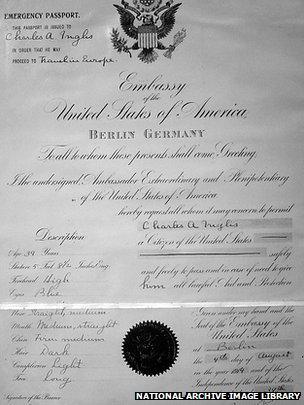 EMERGENCY PASSPORT.
THIS PASSPORT IS ISSUED TO
Charles A Inglis
IN ORDER THAT HE MAY
PROCEED TO travel in Europe.
Embassy
of the
United States of America,
BERLIN GERMANY
To all to whom these presents shall come, Greeting,
I the undersigned, Ambassador Extraordinary and Plenipotentiary
of the United States of America
hereby request all whom it may concern to permit
Charles A Inglis
a Citizen of the United States
safely
and freely to pass and in case of need to give
him all lawful Aid and Protection
Description
Age 39 Years
Stature 5 Feet Inches Eng.
Forehead High
Eyes Blue
Nose Straight, medium
Mouth Medium, straight
Chin Firm medium
Hair Dark
Complexion Light
Face Long
Signature of the Bearer
Given under my hand and the
Seal of the Embassy of the
United States
at Berlin
the 4th day of August
in the year 1914 and of the
Independence of the United States
NATIONAL ARCHIVE IMAGE LIBRARY